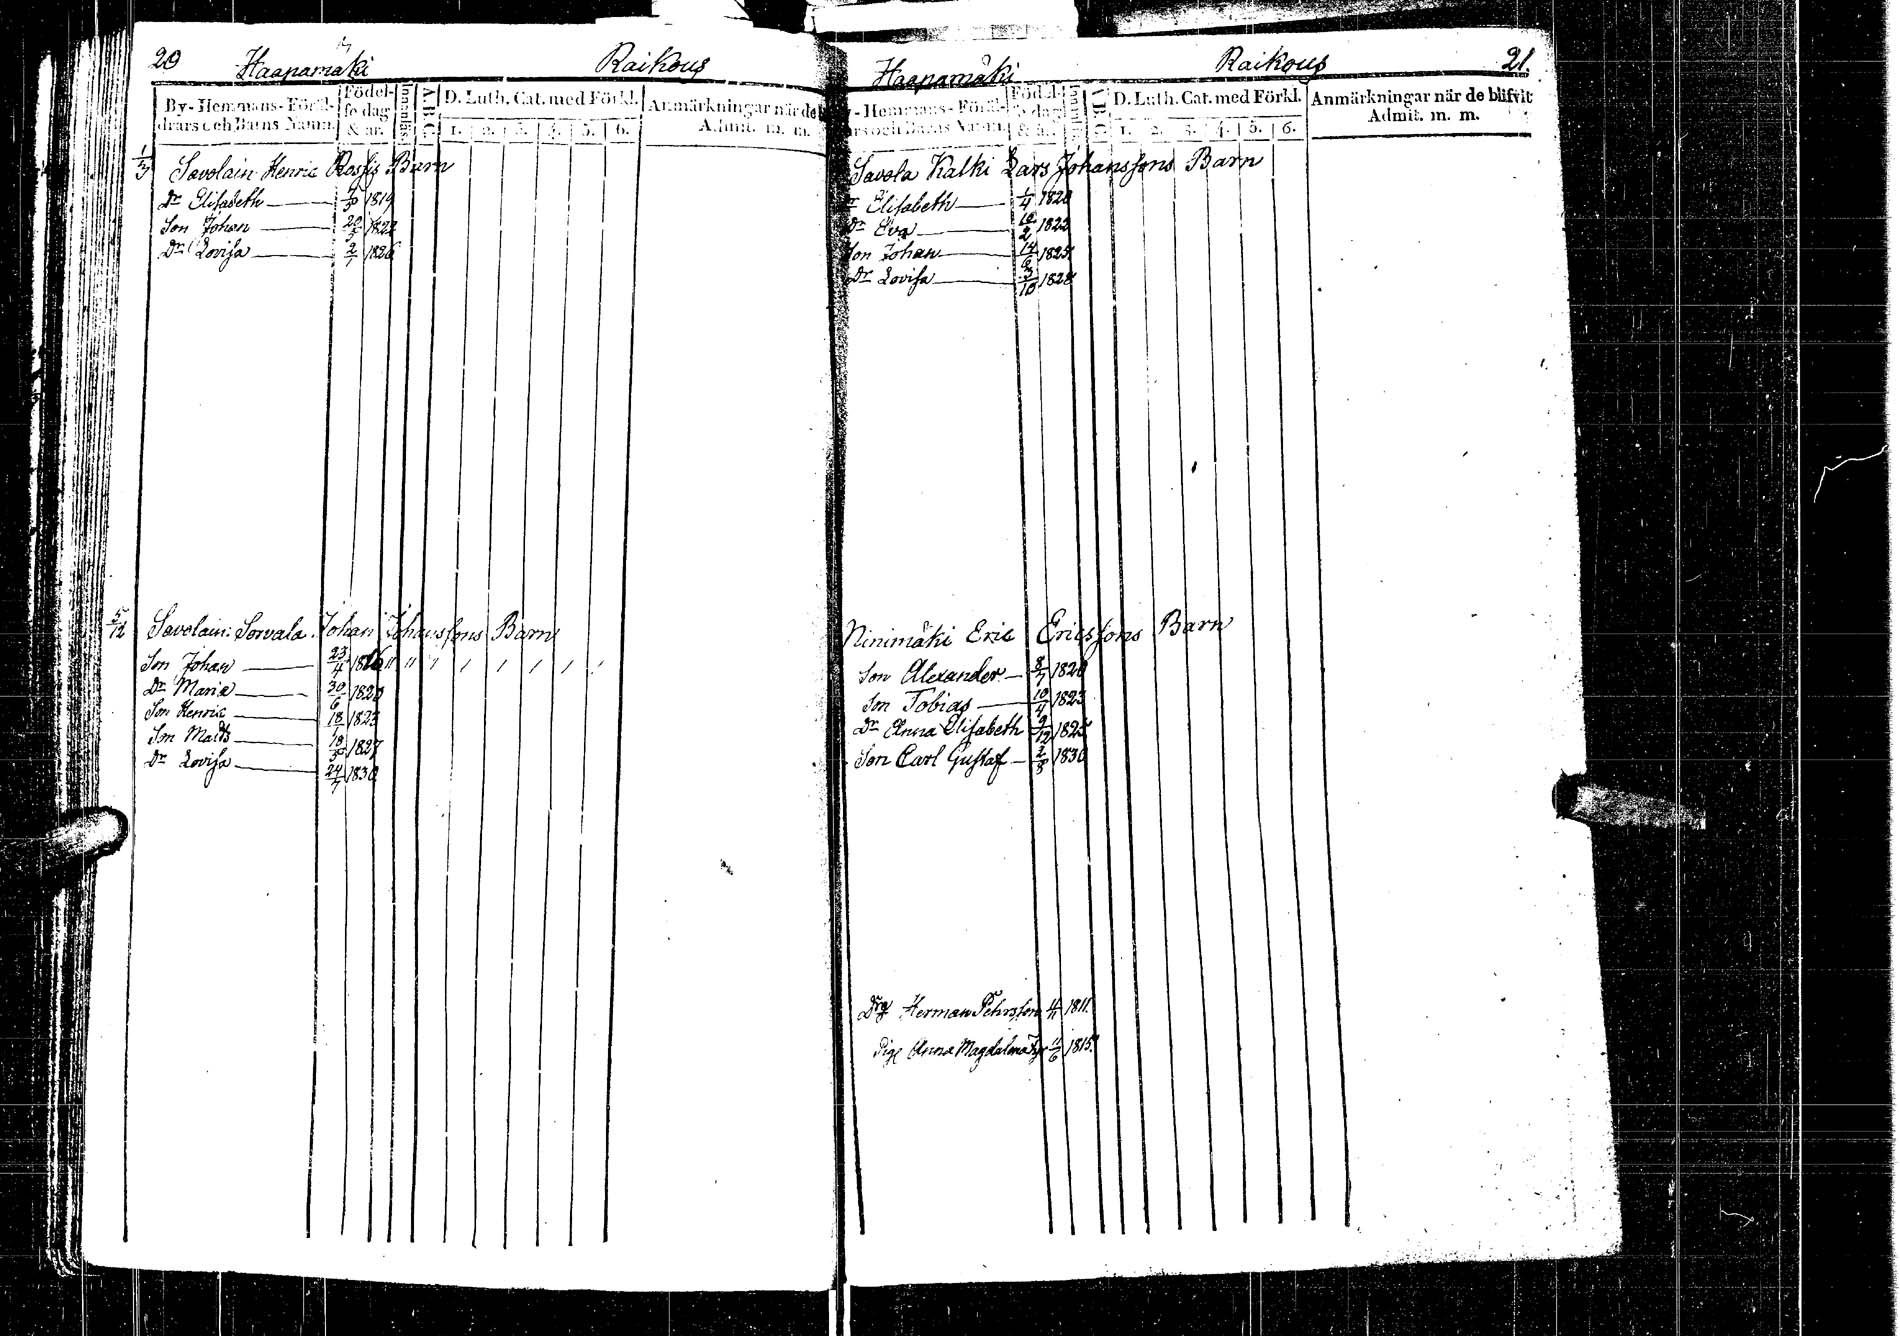 20 Haapamäki Raikous
By-Hemmans-Föräl-
drars och Barns Namn.
Födel-
se dag
& år.
Innanläs.
A B C
D. Luth. Cat. med Förkl.
1. 2. 3. 4. 5. 6.
Anmärkningar när de
Admit. m. m.
Savolain Henric Barn
Dr Elisabeth 1819
Son Johan 1822
Dr Lovisa 2/1 1826
5/12 Savolain Sorvala Johan Johanssons Barn
Son Johan 23/4 18
Dr Maria 30/6 1820
Son Henric 18 1823
Son Matts 1827
Dr Lovisa 24/7 1830
Haapamäki Raikous 21.
-Hemmans-Föräl-
rs och Barns Namn.
Födel-
se dag
& år.
Innanläs.
A B C
D. Luth. Cat. med Förkl.
1. 2. 3. 4. 5. 6.
Anmärkningar när de blifvit
Admit. m. m.
Savola Kalki Lars Johanssons Barn
Dr Elisabeth 1/4 1820
Dr Eva 1822
Son Johan 14/6 1825
Dr Lovisa 3/10 1828
Ninimäki Eric Ericssons Barn
Son Alexander 8/7 1820
Son Tobias 10/4 1823
Dr Anna Elisabeth 9/12 1825
Son Carl Gustaf 2/8 1830
Drg Herman Pehrsson 1811.
Pig Anna Magdalena 11/6 1815.